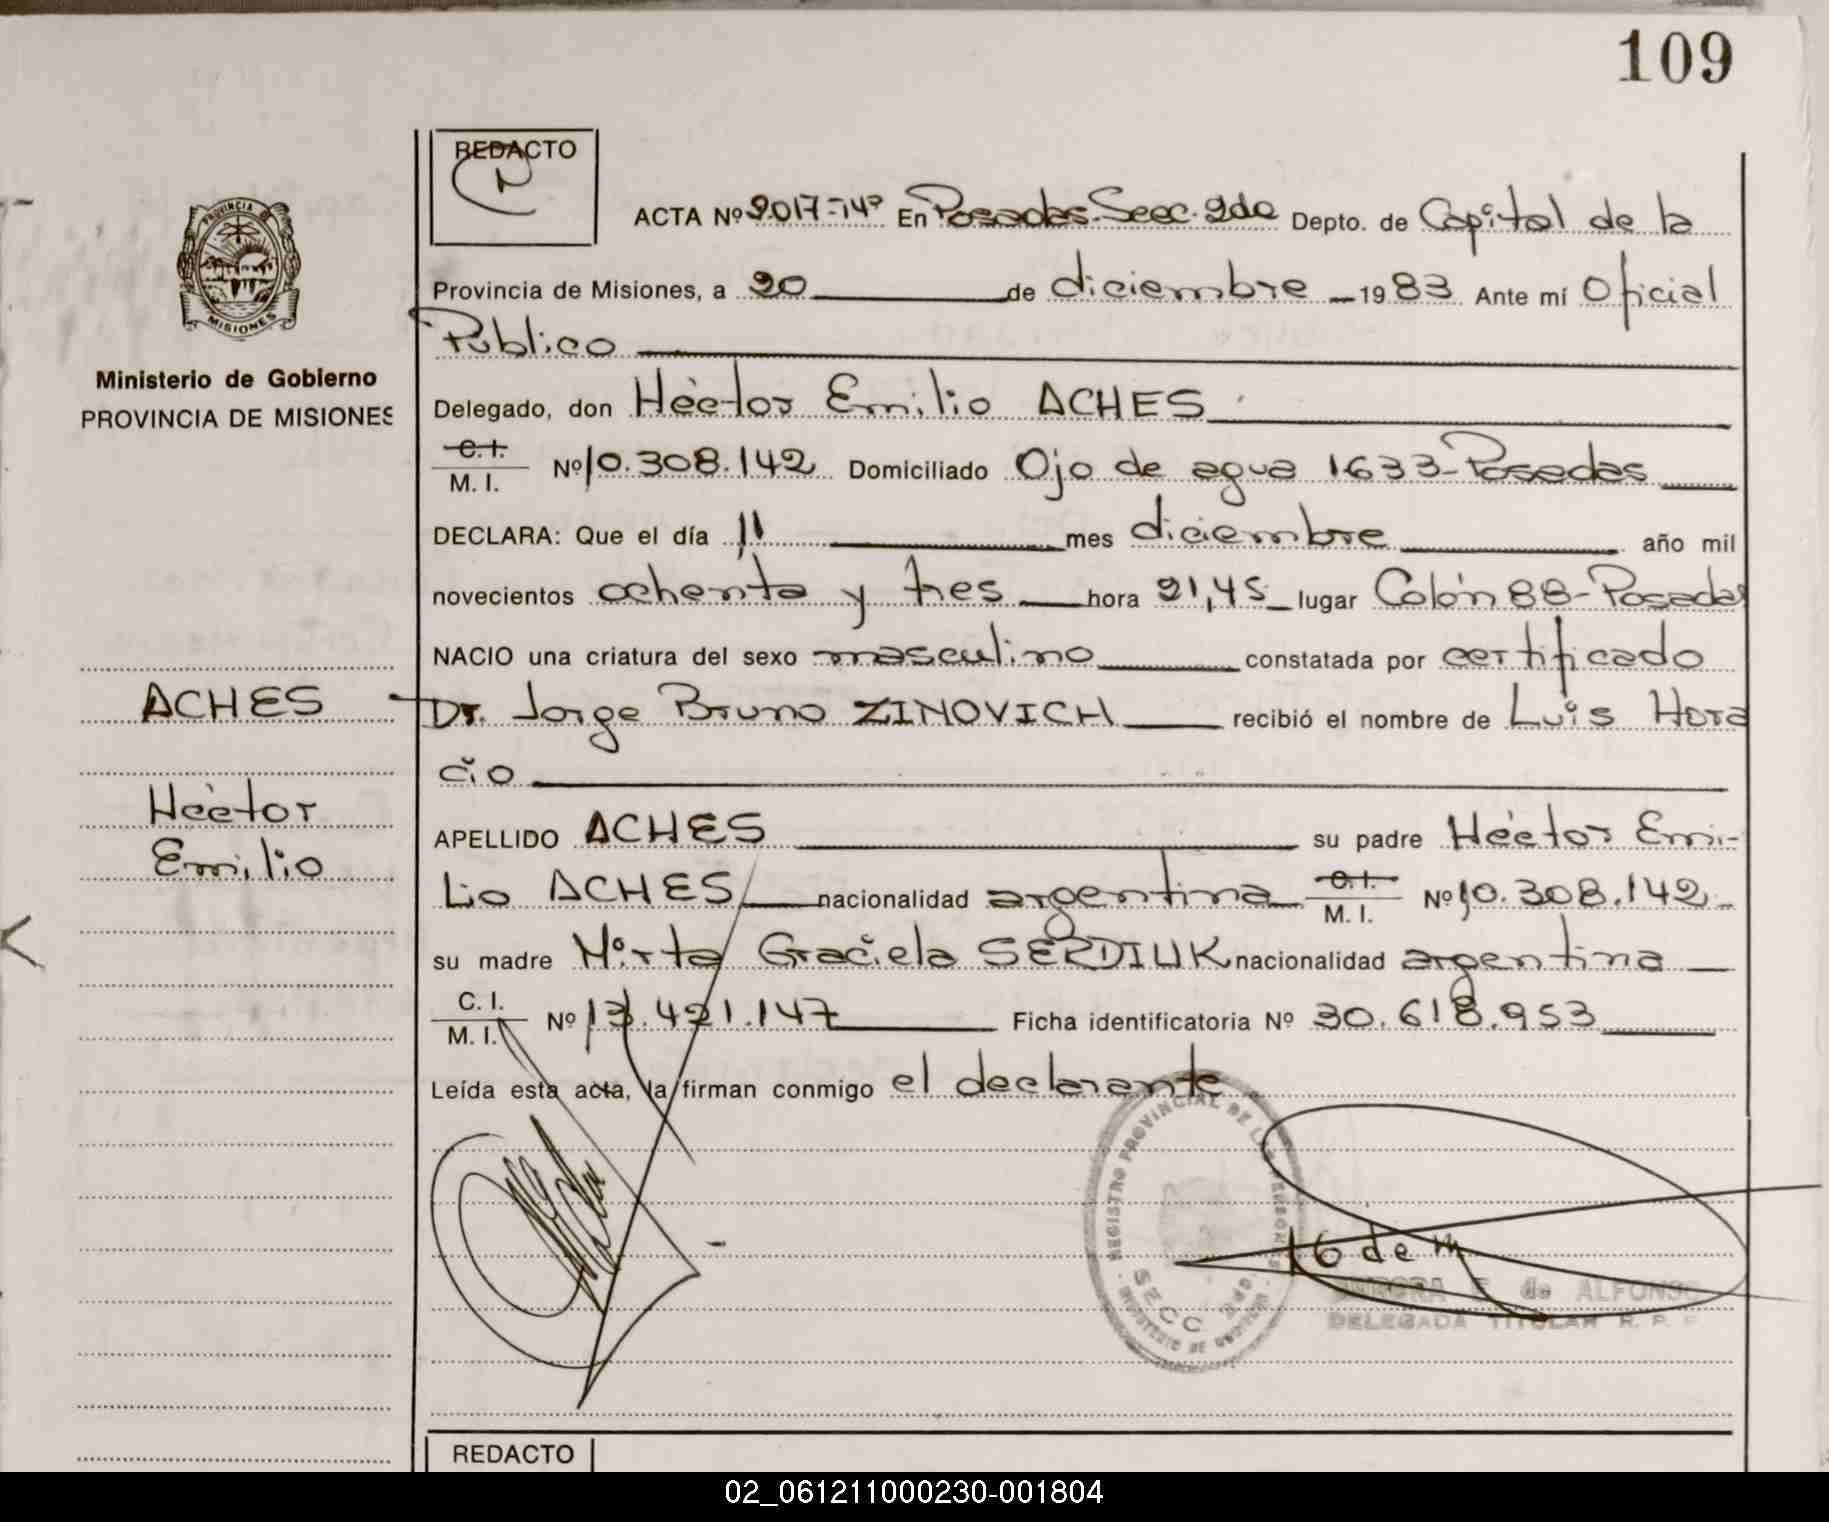 109
REDACTO
ACTA Nº 2017-14º En Posadas-Secc. 2da Depto. de Capital de la
PROVINCIA DE MISIONES
Provincia de Misiones, a 20 de diciembre 1983 Ante mí Oficial
Público
Ministerio de Gobierno
PROVINCIA DE MISIONES
Delegado, don Héctor Emilio ACHES
C.I. M.I. Nº 10.308.142 Domiciliado Ojo de agua 1633-Posadas
DECLARA: Que el día 11 mes diciembre año mil
novecientos ochenta y tres hora 21,45 lugar Colón 88-Posadas
NACIO una criatura del sexo masculino constatada por certificado
ACHES
Dr. Jorge Bruno ZINOVICH recibió el nombre de Luis Hora
cio
Héctor
Emilio
APELLIDO ACHES su padre Héctor Emi-
Lio ACHES nacionalidad argentina C.I. M.I. Nº 10.308.142
su madre Mirta Graciela SERDIUK nacionalidad argentina
C.I. M.I. Nº 13.421.147 Ficha identificatoria Nº 30.618.953
Leída esta acta, la firman conmigo el declarante
REGISTRO PROVINCIAL DE LAS PERSONAS
SECC 2da
MINISTERIO DE GOBIERNO
16 de
de ALFONSO
DELEGADA TITULAR R. P. P.
REDACTO
02_061211000230-001804